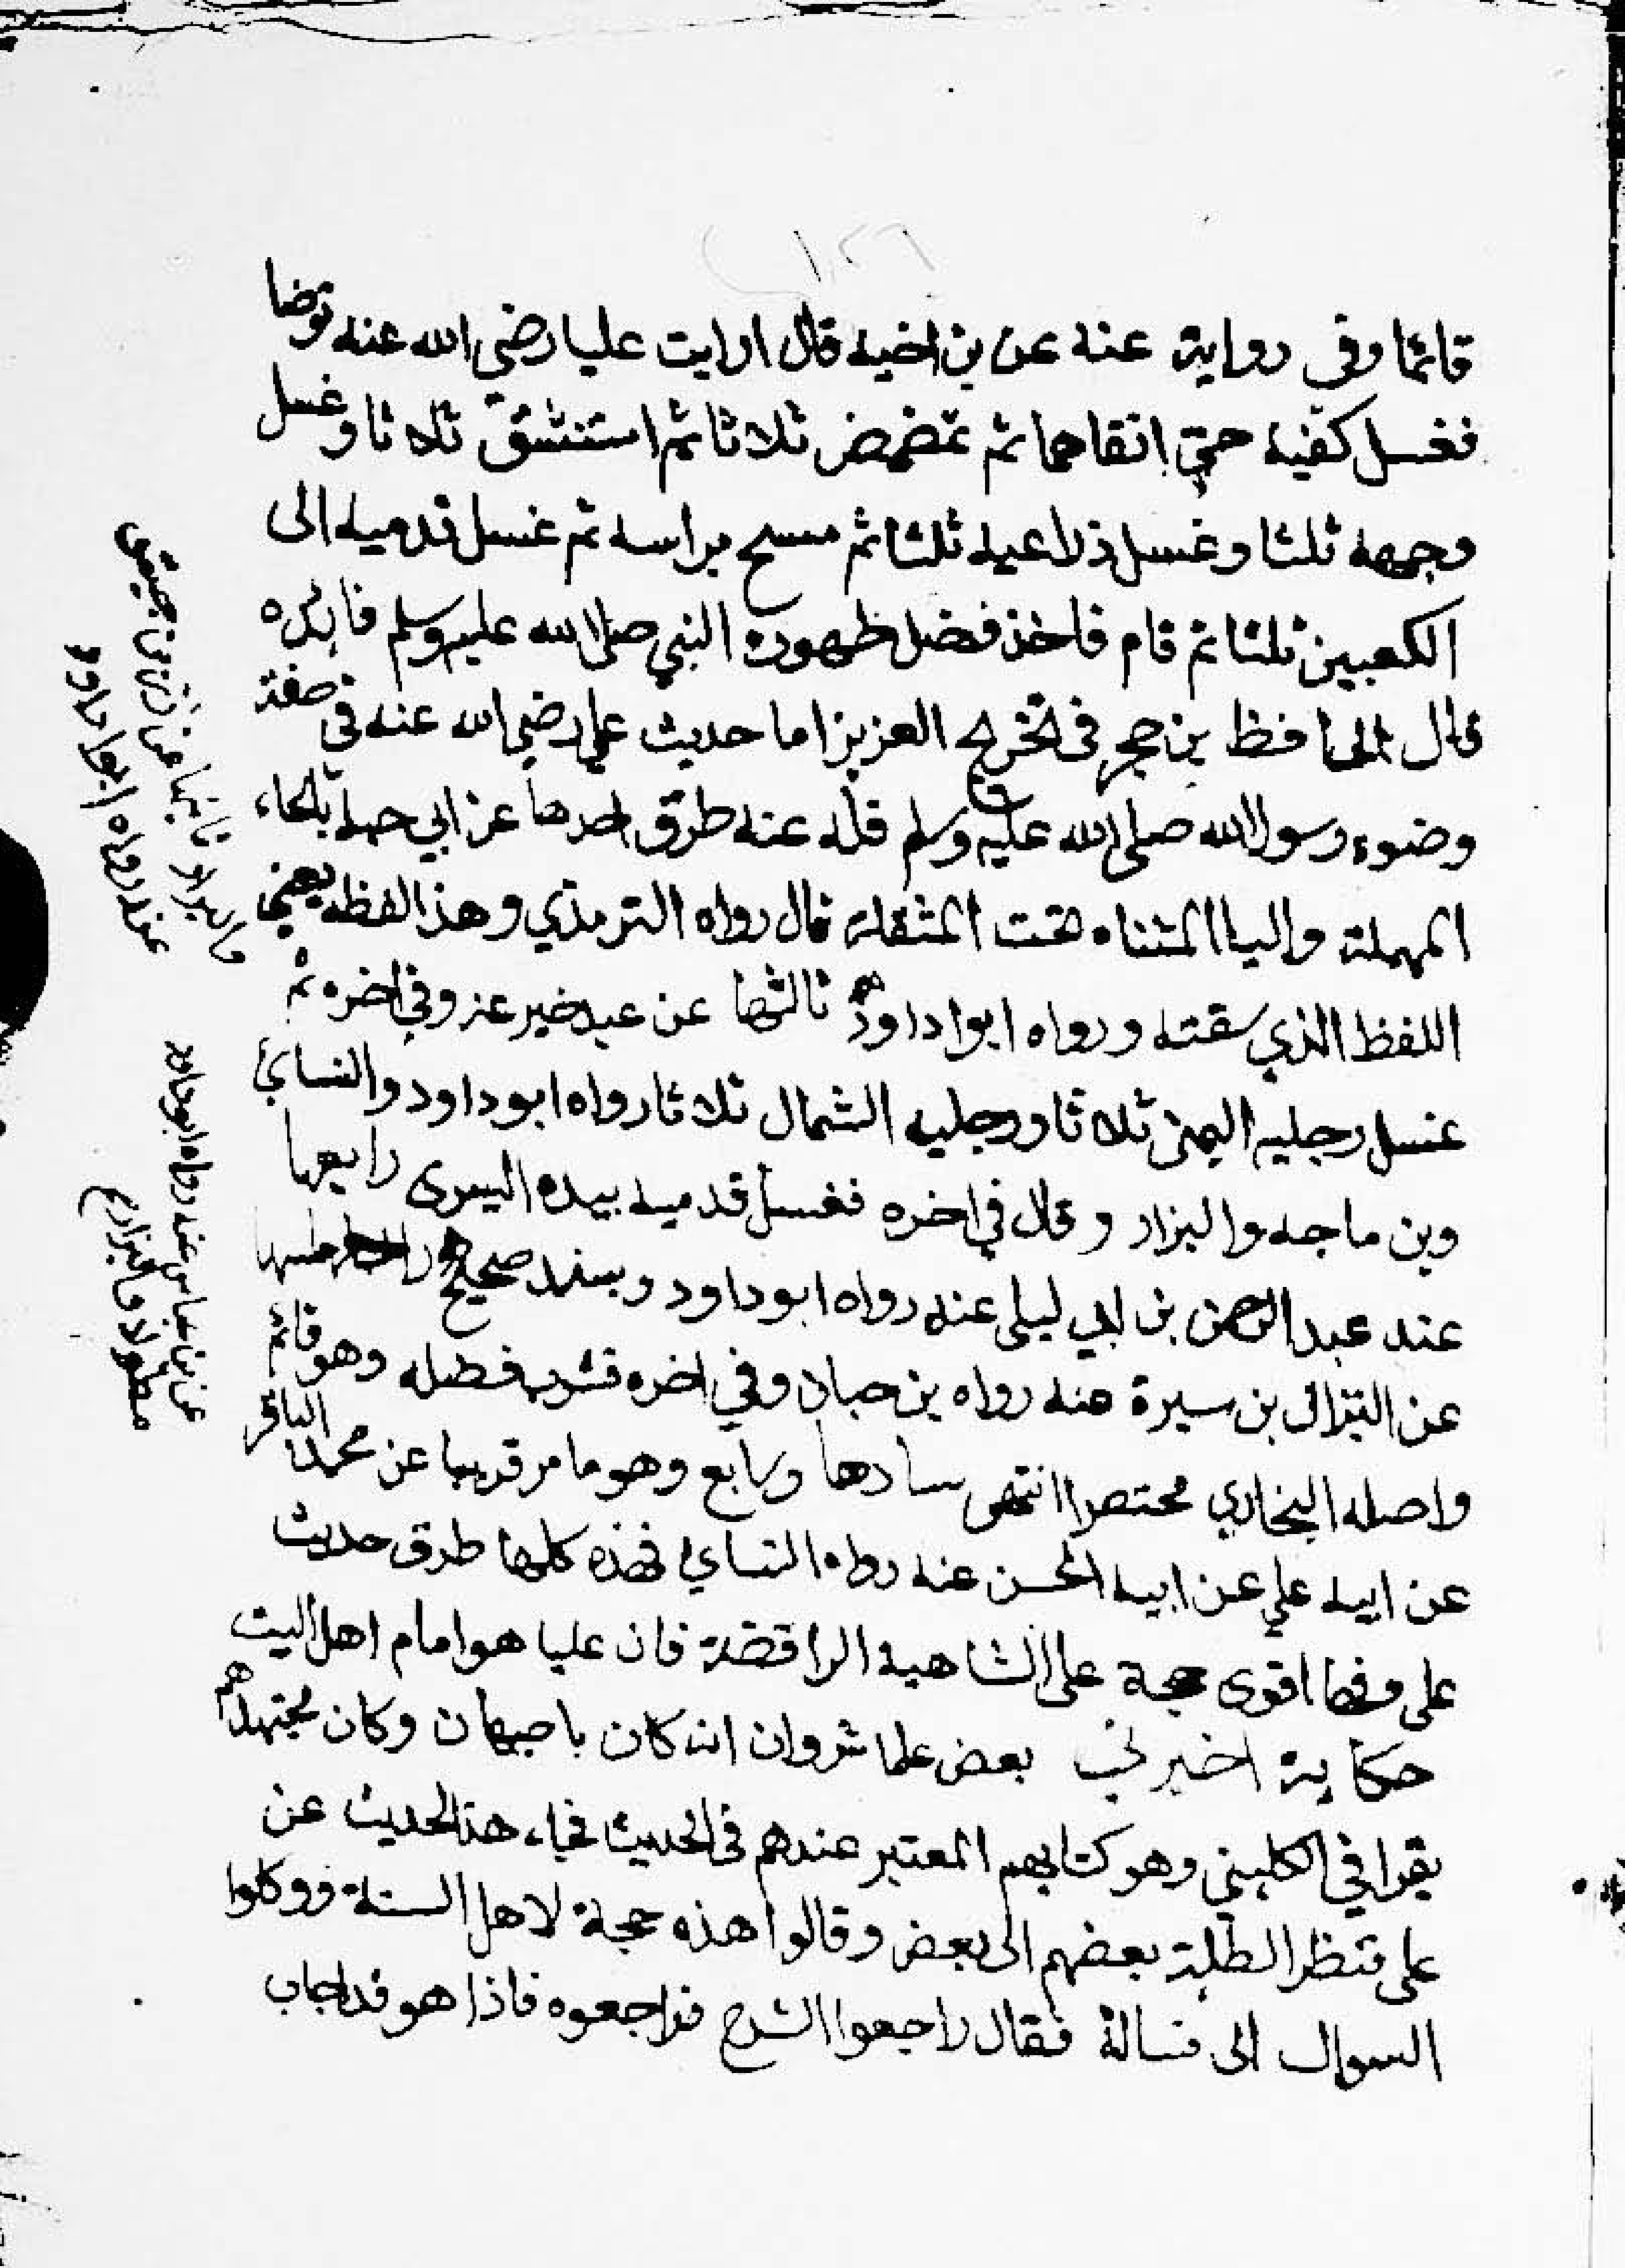 قائما وفي رواية عنه عن بن اخيه قال ارايت عليا رضي الله عنه توضا
فغسل كفيه حتى انقاهما ثم تمضمض ثلاثا ثم استنشق ثلاثا وغسل
وجهه ثلثا وغسل ذلاعيه ثلثا ثم مسح براسه ثم غسل قدميه الى
الكعبين ثلثا ثم قام فاخذ فضل طهوره النبي صلى الله عليه وسلم
قال الحافظ بن حجر في تخريج العزيز اما حديث علي رضي الله عنه في صفة
وضوء رسول الله صلى الله عليه وسلم فله عنه طرق احدها عن ابي حية بالحاء
المهملة واليا المثناه تحت المثقلة قال رواه الترمذي وهذا لفظه يعني
اللفظ الذي سقته ورواه ابوا داود ثالثها عن عبد خير عنه وفي اخره ثم
غسل رجليه اليمنى ثلاثا ورجليه الشمال ثلاثا رواه ابو داود والنسائي
وبن ماجه والبزار وقال في اخره فغسل قدميه بيده اليسرى رابعها
عند عبد الرحمن بن ابي ليلى عنه رواه ابو داود وبسند صحيح
عن النزال بن سبرة عنه رواه بن حبان وفي اخره فشرب فضله وهو قائم
واصله البخاري مختصرا انتهى سادها وسابع وهو ما مر قريبا عن محمد الباقر
عن ابيه علي عن ابيه الحسن عنه رواه النساي فهذه كلها طرق حديث
علي وفيها اقوى حجة على الشاهية الرافضة فان عليا هو امام اهل البيت
حكاية اخبرني بعض علما شروان انه كان باصبهان وكان مجتهدهم
يقرا في الكليني وهو كتابهم المعتبر عندهم في الحديث فجاء هذا الحديث عن
علي فنظر الطلبة بعضهم الى بعض وقالوا هذه حجة لاهل السنة ووكلوا
السوال الى فسالة فقال راجعوا الشرح فراجعوه فاذا هو قد اجاب
والبزار ثانيها عن زر بن حبيش
عنه رواه ابوا داود
عن بن عباس عنه رواه ابو داود
مطولا والبزار